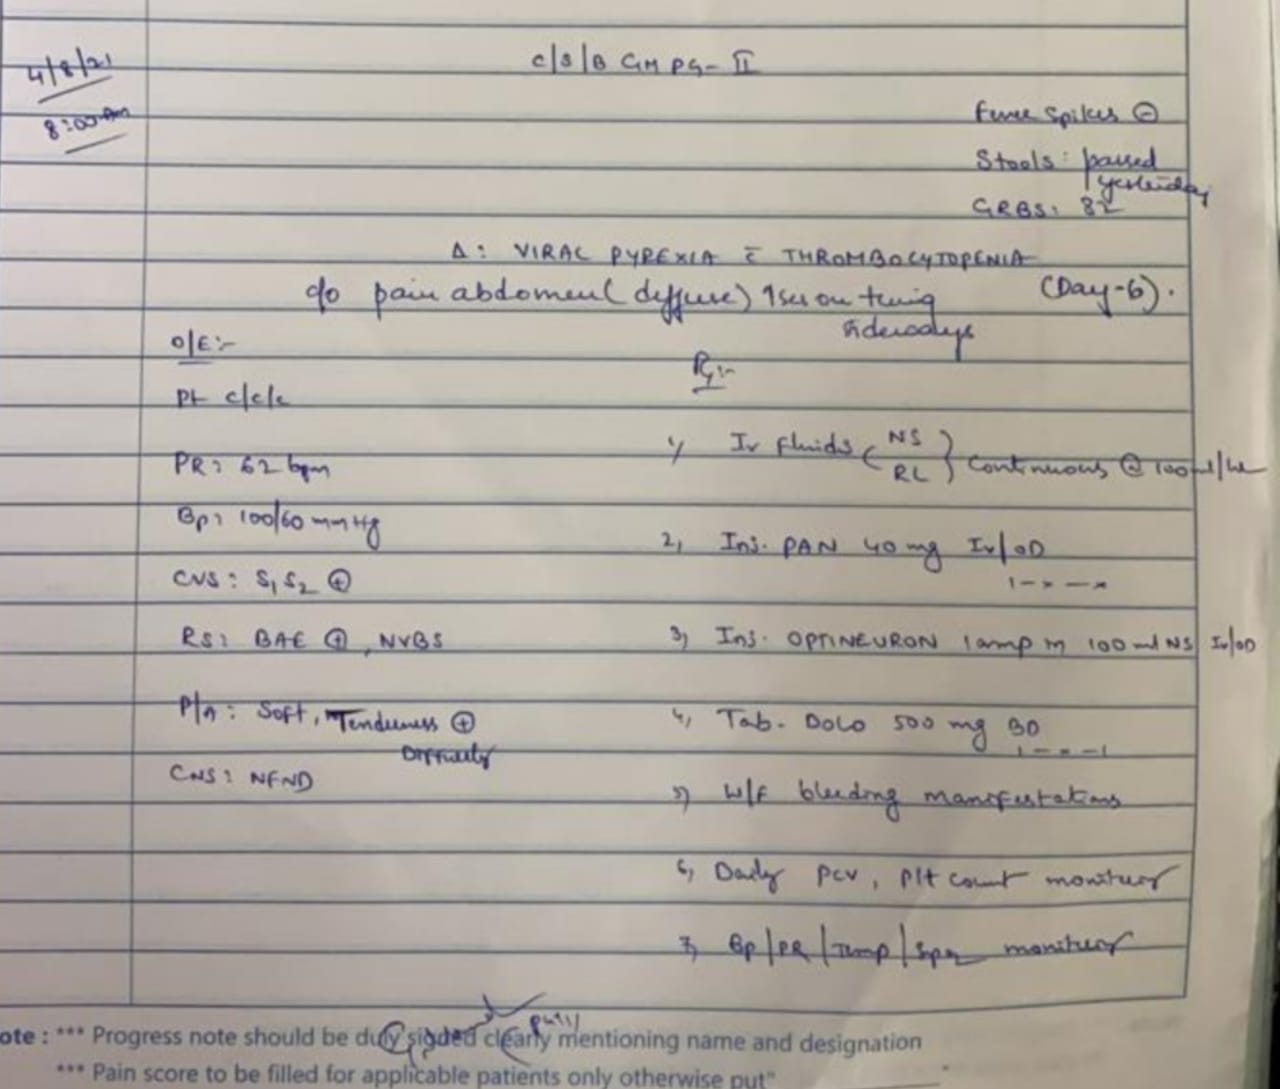 4/8/21
8:00 Am
C/S/B GM PG-II
Fever Spikes ⊖
Stools: passed
yesterday
GRBS: 82
Δ: VIRAL PYREXIA c̄ THROMBOCYTOPENIA
(Day-6).
c/o pain abdomen (diffuse) ↑ses on
O/E:-
Rx:-
Pt c/c/c
1) Iv fluids (NS
RL) Continuous @ 100ml/hr
PR: 62 bpm
BP: 100/60 mmHg
2) Inj. PAN 40 mg Iv/OD
1-x-x
CVS: S1 S2 ⊕
RS: BAE ⊕, NVBS
3) Inj. OPTINEURON 1 amp in 100 ml NS Iv/OD
P/A: Soft, Tenderness ⊕
Diffusely
4) Tab. DOLO 500 mg BD
1-x-1
CNS: NFND
5) W/F bleeding manifestations
6) Daily PCV, Plt count
7) BP/PR/Temp/Spo2
ote : *** Progress note should be duly signed clearly mentioning name and designation
*** Pain score to be filled for applicable patients only otherwise put"